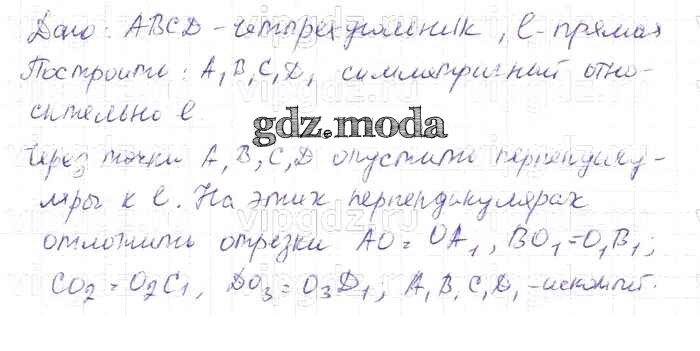 Дано: ABCD - четырехугольник, l - прямая
Построить: A₁B₁C₁D₁ симметричный отно-
сительно l.
gdz.moda
Через точки A, B, C, D опустить перпендику-
ляры к l. На этих перпендикулярах
vipgdz.ru
отложить отрезки AO = OA₁, BO₁ = O₁B₁;
CO₂ = O₂C₁, DO₃ = O₃D₁; A₁B₁C₁D₁ - искомый.